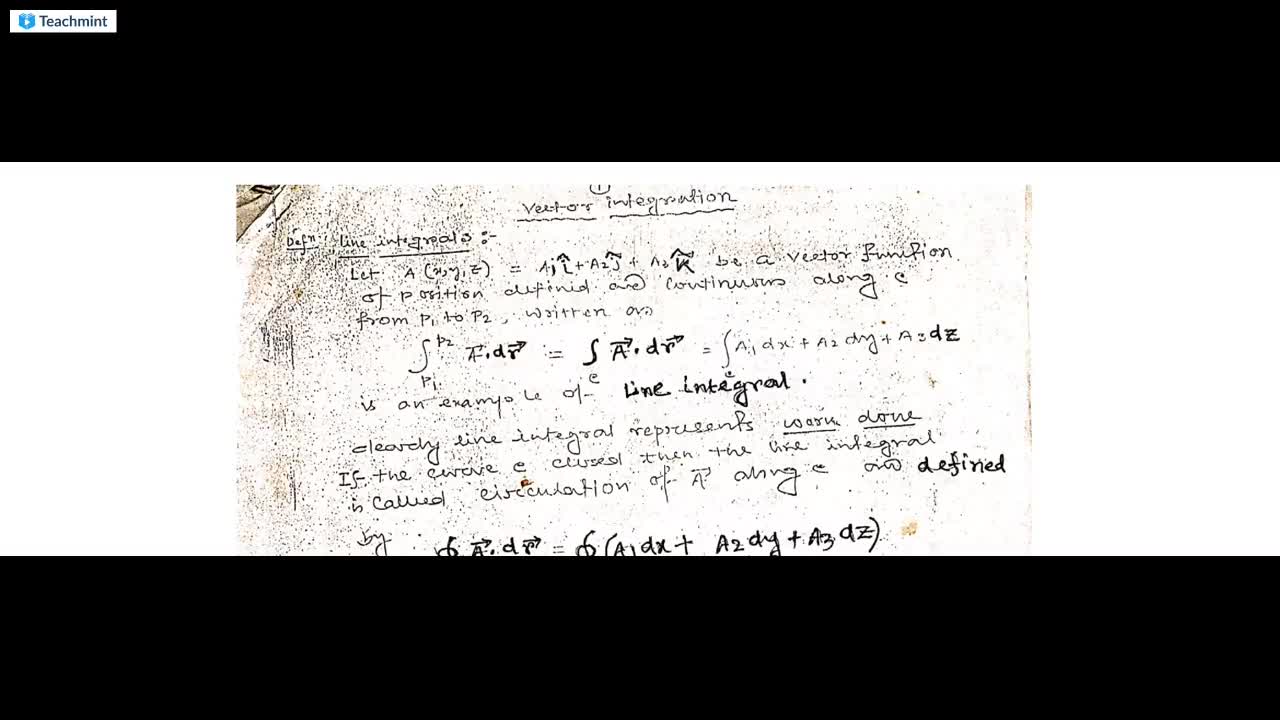 Teachmint
①
Vector integration
Defn: Line integrals :-
Let A (x,y,z) = A₁î + A₂ĵ + A₃k̂ be a vector function
of position defined and continuous along c
from P₁ to P₂, written as
∫ P₁ P₂ A⃗.dr⃗ = ∫c A⃗.dr⃗ = ∫c A₁ dx + A₂ dy + A₃ dz
is an example of Line integral.
clearly line integral represents work done
If the curve c closed then the line integral
is called circulation of A⃗ along c as defined
by
∮ A⃗.dr⃗ = ∮ (A₁dx + A₂dy + A₃dz)